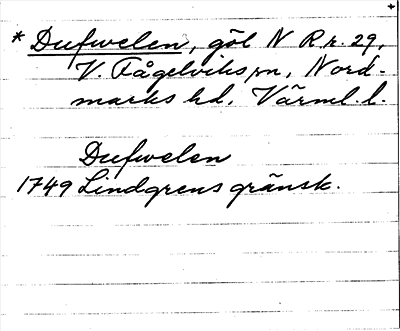 * Dufwelen, göl N R.r. 29,
V. Fågelviks sn, Nord-
marks hd, Värml. l.
Dufwelen
1749 Lindgrens gränsk.